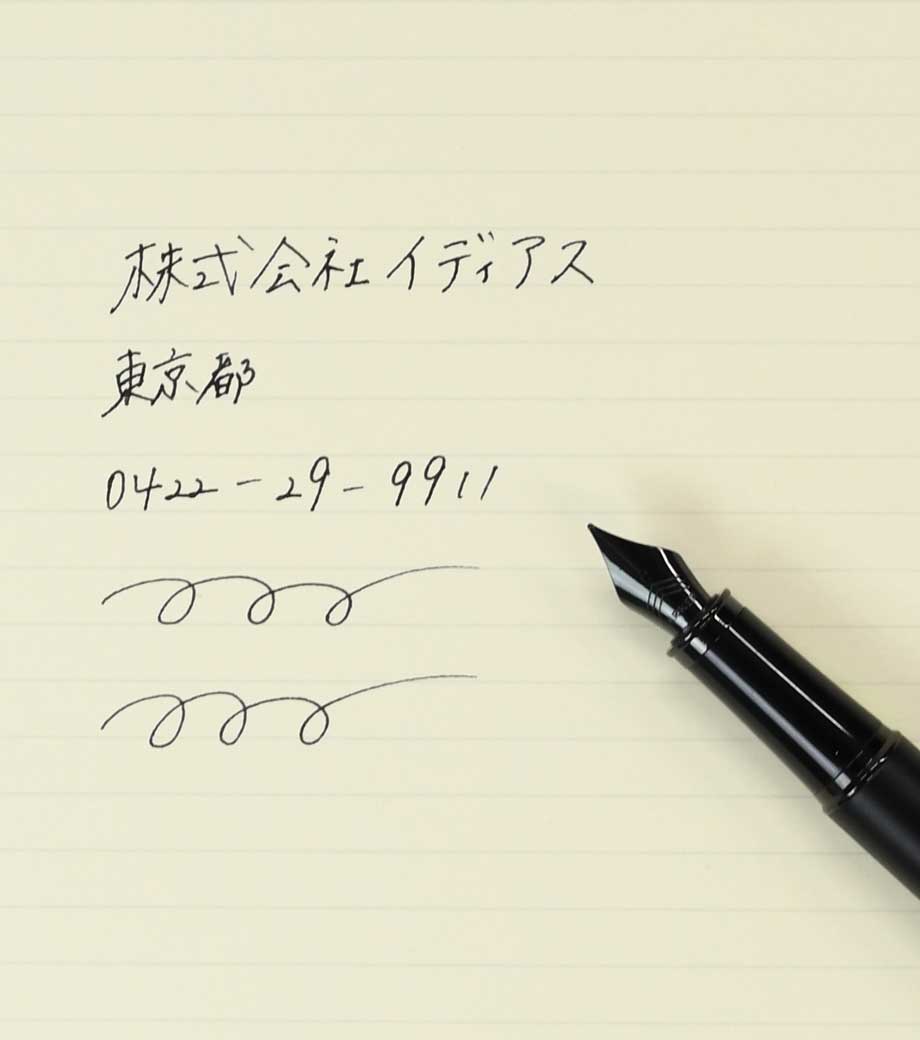 株式会社イディアス
東京都
0422-29-9911